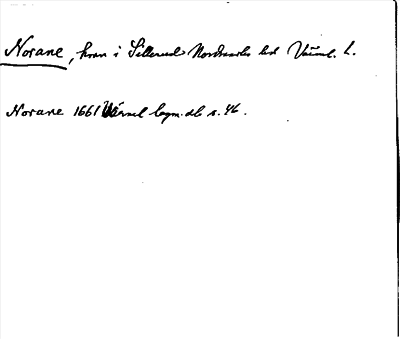 Norane, kvarn i Sillerud Nordmarks hd Värml. l.
Norane 1661 Värml lagm.db s. 46.